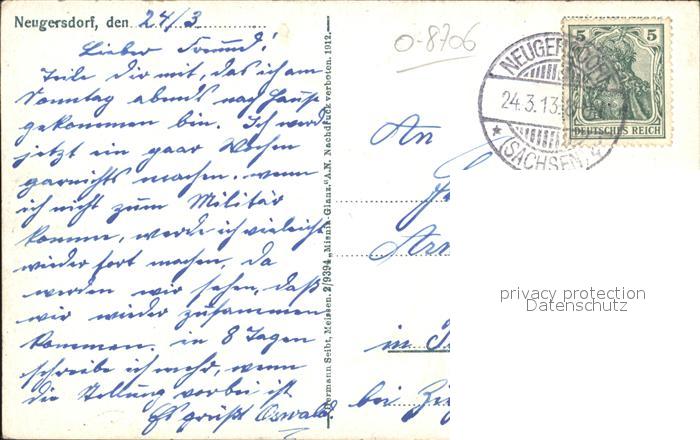 Neugersdorf, den 24/3
Lieber Freund!
Teile dir mit, das ich am
Sonntag abends nach Hause
gekommen bin. Ich werde
jetzt ein paar Wochen
garnichts machen. wenn
ich nicht zum Militär
komme, werde ich vielleicht
wieder fort machen, da
werden wir sehen, daß
wir wieder zusammen
kommen. in 8 Tagen
schreibe ich mehr, wenn
die Stellung vorbei ist
Es grüßt Oswald.
Hermann Seibt, Meissen. 2/9394 „Misnia-Glanz“ A.N. Nachdruck verboten. 1912.
0-8706
NEUGERSDORF
24.3.13.
* (SACHSEN)
5 5
DEUTSCHES REICH
An
in
bei
privacy protection
Datenschutz